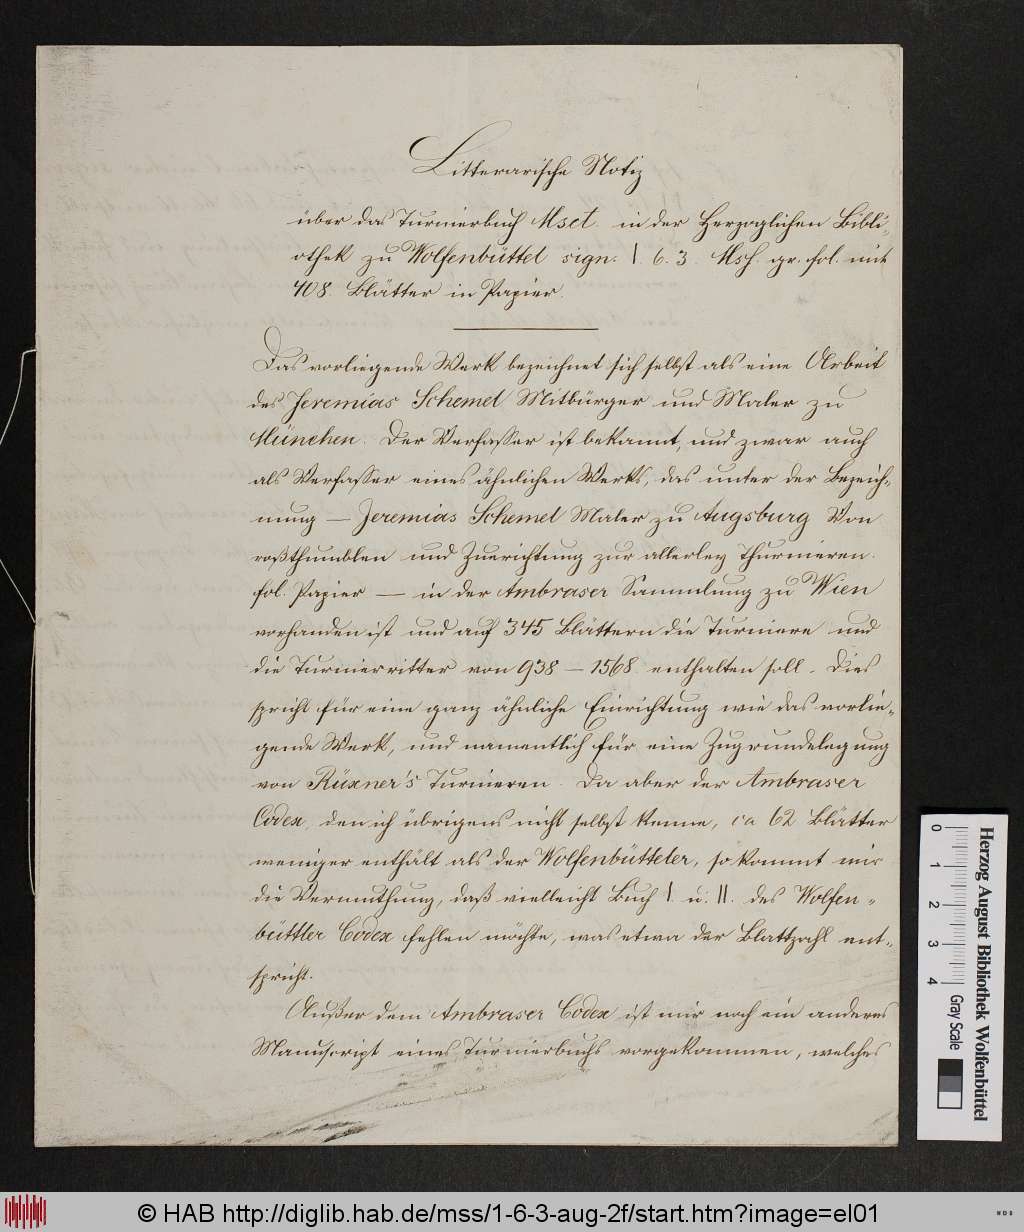 Litterarische Notiz
über das Turnierbuch Mset. in der Herzoglichen Bibli-
othek zu Wolfenbüttel sign: 1. 6. 3. Msf. gr. fol. mit
408. Blätter in Papier.
Das vorliegende Werk bezeichnet sich selbst als eine Arbeit
des Jeremias Schemel Mitbürger und Maler zu
München. Der Verfasser ist bekannt, und zwar auch
als Verfasser eines ähnlichen Werks, das unter der Bezeich-
nung — Jeremias Schemel Maler zu Augsburg Von
roßthumblen und Zuerichtung zur allerley Thurnieren.
fol. Papier — in der Ambraser Sammlung zu Wien
vorhanden ist und auf 345 Blättern die Turniere und
die Turnierritter von 938 — 1568. enthalten soll. Dies
spricht für eine ganz ähnliche Einrichtung wie das vorlie-
gende Werk, und namentlich für eine Zugrundelegung
von Rüxner's Turnieren. Da aber der Ambraser
Codex, den ich übrigens nicht selbst kenne, ca 62 Blätter
weniger enthält als der Wolfenbütteler, so kommt mir
die Vermuthung, daß vielleicht Buch I. u. II. des Wolfen-
büttler Codex fehlen möchte, was etwa der Blattzahl ent-
spricht.
Außer dem Ambraser Codex ist mir noch ein anderes
Manuscript eines Turnierbuchs vorgekommen, welches
0 1 2 3 4
Herzog August Bibliothek Wolfenbüttel
Gray Scale
© HAB http://diglib.hab.de/mss/1-6-3-aug-2f/start.htm?image=el01